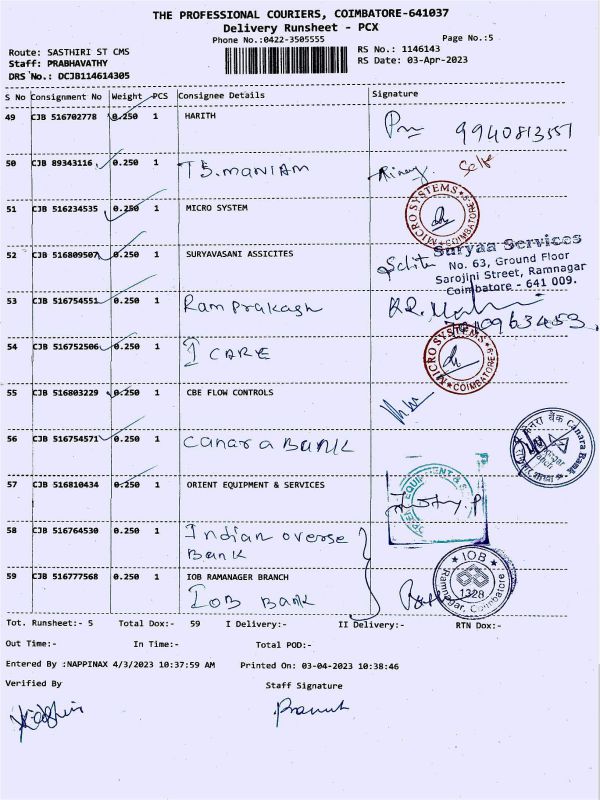 THE PROFESSIONAL COURIERS, COIMBATORE-641037
Delivery Runsheet - PCX
Phone No.:0422-3505555 Page No.:5
Route: SASTHIRI ST CMS RS No.: 1146143
Staff: PRABHAVATHY RS Date: 03-Apr-2023
DRS No.: DCJB114614305
S No Consignment No Weight PCS Consignee Details Signature
49 CJB 516702778 0.250 1 HARITH 9940813551
50 CJB 89343116 0.250 1 T.S. MANIAM Self
51 CJB 516234535 0.250 1 MICRO SYSTEM
MICRO SYSTEMS COIMBATORE-9
52 CJB 516809507 0.250 1 SURYAVASANI ASSICITES
Suryaa Services
No. 63, Ground Floor
Sarojini Street, Ramnagar
Coimbatore - 641 009.
53 CJB 516754551 0.250 1 Ram prakash
54 CJB 516752506 0.250 1 I CARE
MICRO SYSTEMS COIMBATORE-9
55 CJB 516803229 0.250 1 CBE FLOW CONTROLS
56 CJB 516754571 0.250 1 Canara BANK
Canara Bank
57 CJB 516810434 0.250 1 ORIENT EQUIPMENT & SERVICES
58 CJB 516764530 0.250 1 Indian overse
Bank
59 CJB 516777568 0.250 1 IOB RAMANAGER BRANCH
IOB Bank
IOB
1328
Ramnagar, Coimbatore
Tot. Runsheet:- 5 Total Dox:- 59 I Delivery:- II Delivery:- RTN Dox:-
Out Time:- In Time:- Total POD:-
Entered By :NAPPINAX 4/3/2023 10:37:59 AM Printed On: 03-04-2023 10:38:46
Verified By Staff Signature